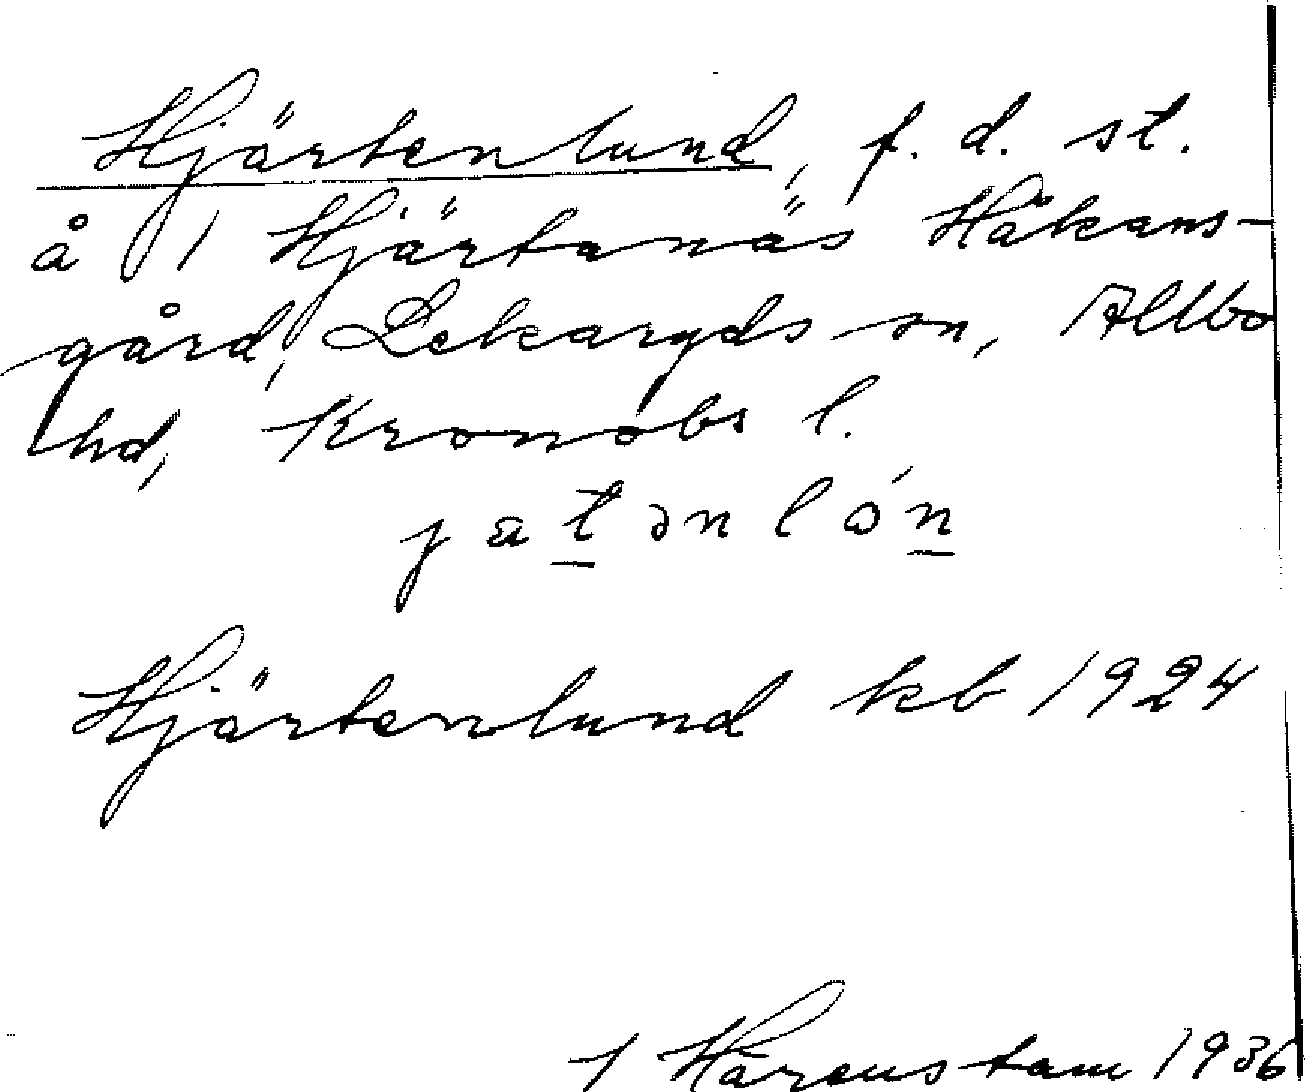 Hjärtenlund, f. d. st.
å 1 Hjärtanäs Håkans-
gård, Lekaryds sn, Allbo
hd, Kronobs l.
jat̲ənlón̲
Hjärtenlund kb 1924
J Härenstam 1936